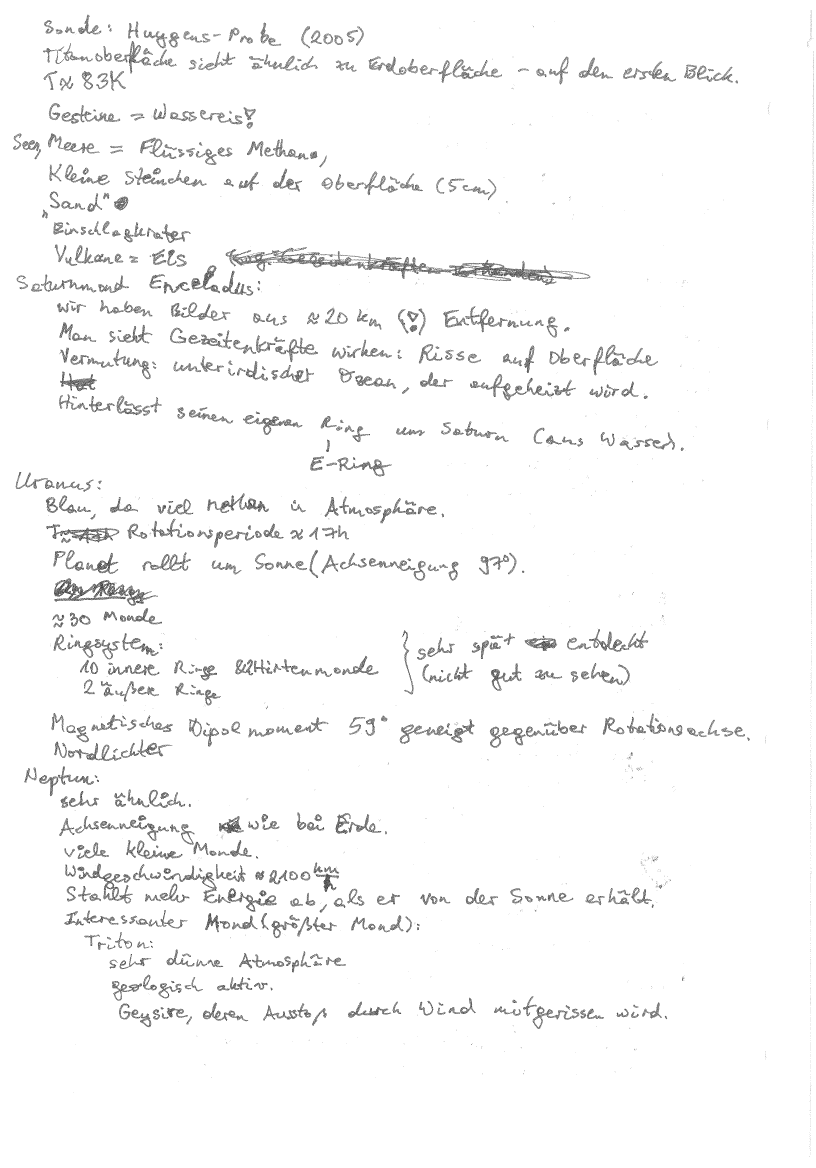 Sonde: Huygens-Probe (2005)
Titanoberfläche sieht ähnlich zu Erdoberfläche - auf den ersten Blick.
T≈ 83K
Gesteine = Wassereis!
Seen, Meere = Flüssiges Methan,
Kleine Steinchen auf der Oberfläche (5cm)
"Sand"
Einschlagkrater
Vulkane = Eis
Saturnmond Enceladus:
Wir haben Bilder aus ≈20 km (!) Entfernung.
Man sieht Gezeitenkräfte wirken: Risse auf Oberfläche
Vermutung: unterirdischer Ozean, der aufgeheizt wird.
Hinterlässt seinen eigenen Ring um Saturn (aus Wasser).
E-Ring
Uranus:
Blau, da viel Methan in Atmosphäre.
Rotationsperiode ≈ 17h
Planet rollt um Sonne (Achsenneigung 97°).
≈30 Monde
Ringsystem: } sehr spät entdeckt
10 innere Ringe & Hirtenmonde (nicht gut zu sehen)
2 äußere Ringe
Magnetisches Dipolmoment 59° geneigt gegenüber Rotationsachse.
Nordlichter
Neptun:
sehr ähnlich.
Achsenneigung wie bei Erde.
viele kleine Monde.
Windgeschwindigkeit ≈ 2100 km/h
Stahlt mehr Energie ab, als er von der Sonne erhält.
Interessanter Mond (größter Mond):
Triton:
sehr dünne Atmosphäre
geologisch aktiv.
Geysire, deren Ausstoß durch Wind mitgerissen wird.